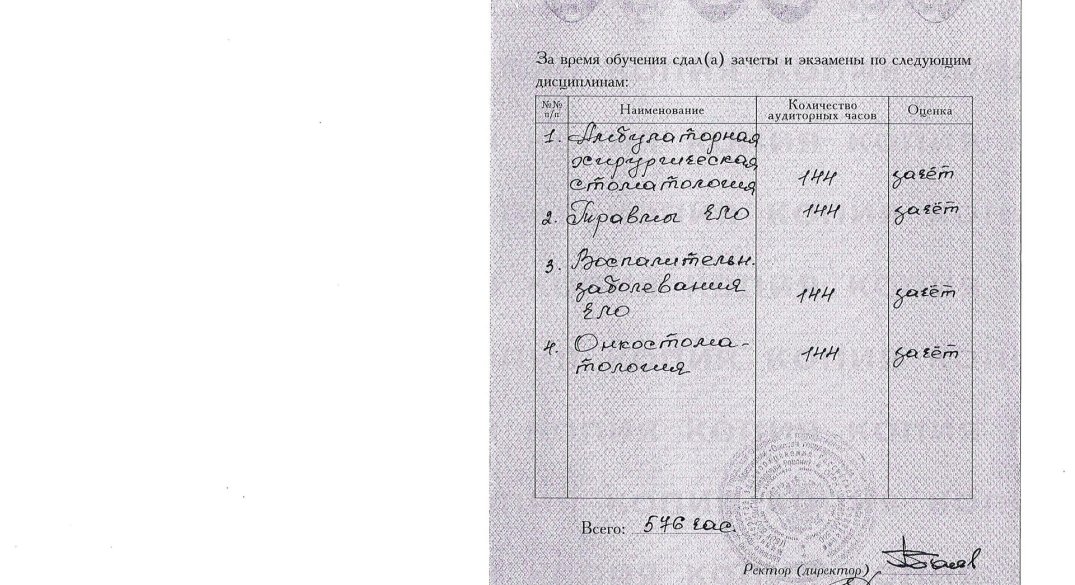 За время обучения сдал(а) зачеты и экзамены по следующим
дисциплинам:
№№ п/п Наименование Количество аудиторных часов Оценка
1. Амбулаторная
хирургическая
стоматология 144 зачёт
2. Травмы ЧЛО 144 зачёт
3. Воспалительн.
заболевания 144 зачёт
ЧЛО
4. Онкостома- 144 зачёт
тология
Всего: 576 час.
Ректор (директор)